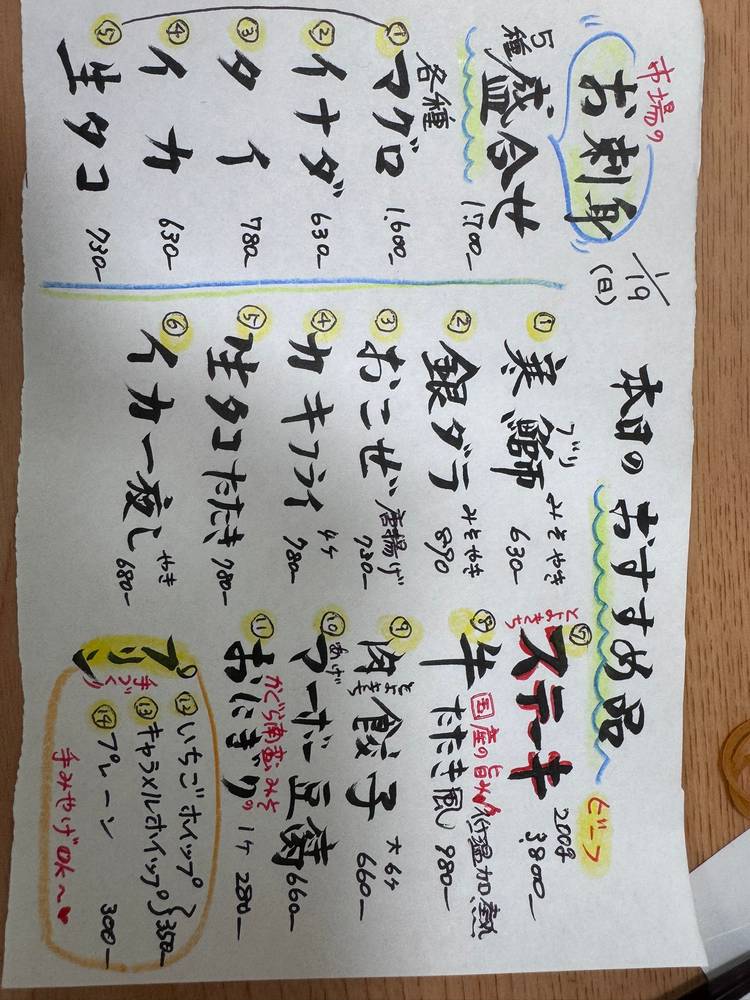 市場の
お刺身
1/19
(日)
5種盛合せ 1.700-
各種
① マグロ 1.600-
② イナダ 630-
③ タイ 780-
④ イカ 630-
⑤ 生タコ 730-
本日のおすすめ品
① 寒鰤 ブリ みそやき 630-
② 銀ダラ みそやき 890
③ おこぜ 唐揚げ 730-
④ カキフライ 4ケ 780-
⑤ 生タコたたき 780-
⑥ イカ一夜し やき 680-
⑦ とよきち ステーキ ビーフ 200g 3.800-
⑧ 牛たたき風 国産の旨み 低温加熱 980-
⑨ 肉餃子 とよきち 大6ケ 660-
⑩ あげマーボー豆腐 660-
⑪ おにぎり みその 1ケ 280-
手づくり
プリン
⑫ いちごホイップ
⑬ キャラメルホイップ } 350-
⑭ プレーン 300-
手みやげOK〜♥